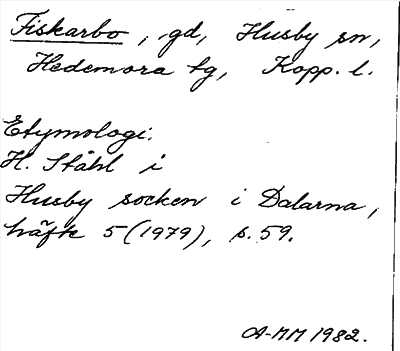 Fiskarbo, gd, Husby sn,
Hedemora tg, Kopp. l.
Etymologi:
H. Ståhl i
Husby socken i Dalarna,
häfte 5 (1979), s. 59.
A-MM 1982.